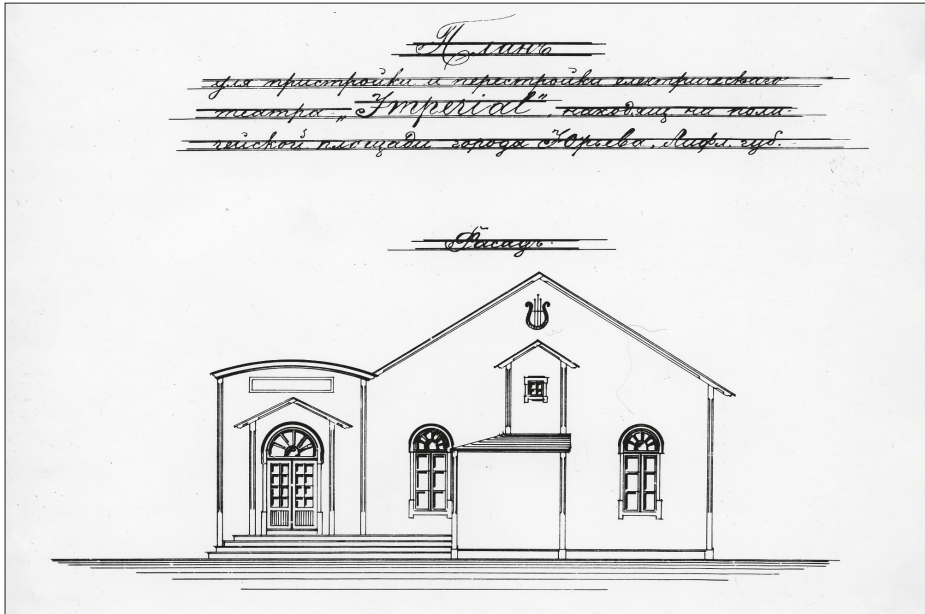 Планъ
для пристройки и перестройки електрическаго
театра „Imperial", находящ. на поли-
цейской площади города Юрьева, Лифл. губ.
Фасадъ.